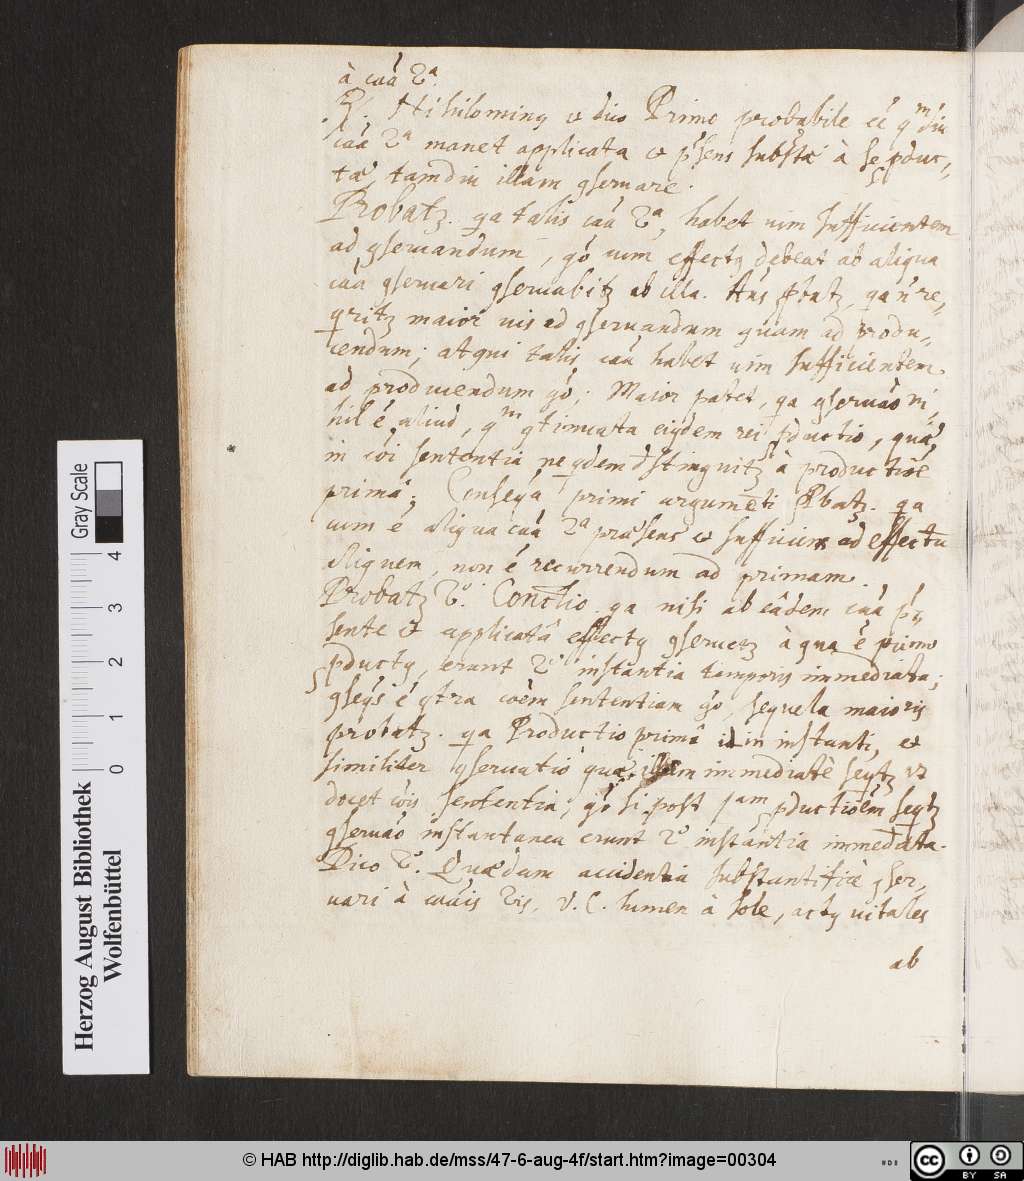 à caâ 2ᵃ.
R. Nihilominq et dico Primo probabile eê qᵐdiu
caâ 2ᵃ manet applicata et p'sens substæ à se pduc-
tæ, tamdiu illam 9servare.
Probatz. qa talis caâ 2ᵃ, habet vim sufficientem
ad 9servandum, gô cum effectq debeat ab aliqua
caâ 9servari 9servabitz ab illa. Ans pbatz, qa n̄ re-
qritz maior vis ad 9servandum quam ad produ-
cendum; atqui talis caâ habet vim sufficientem
ad producendum gô; Maior patet, qa 9servâo ni,
hil ê aliud, qᵐ 9tinuata eiqdem rei pductio, quâ
in côi sententia ne qdem distinguitz à productiōe
primâ; Conseqâ primi argumēti pbatz. qa
cum ê aliqua caâ 2ᵃ præsens et sufficiens ad effectū
aliquem, non ê recurrendum ad primam.
Probatz 2ᵒ. Conclio. qa nisi ab eâdem caâ p'-
sente et applicatâ effectq 9servetz à qua ê primo
pductq, erunt 2ᵒ instantia temporis immediata;
9seqs ê 9tra côem sententiam gô, sequela maioris
probatz. qa Productio prima it in instanti, et
similiter 9servatio quæ illam immediatè seqtz vt
docet côis sententia, gô si post pductiōem seqtz
9servâo instantanea erunt 2ᵒ instantia immediata.
Dico 2ᵒ. Quædam accidentia substantificè 9ser-
vari à câuis 2is, V.C. lumen à sole, actq vitales
ab
Herzog August Bibliothek
Wolfenbüttel
Gray Scale
0 1 2 3 4
© HAB http://diglib.hab.de/mss/47-6-aug-4f/start.htm?image=00304
cc BY SA